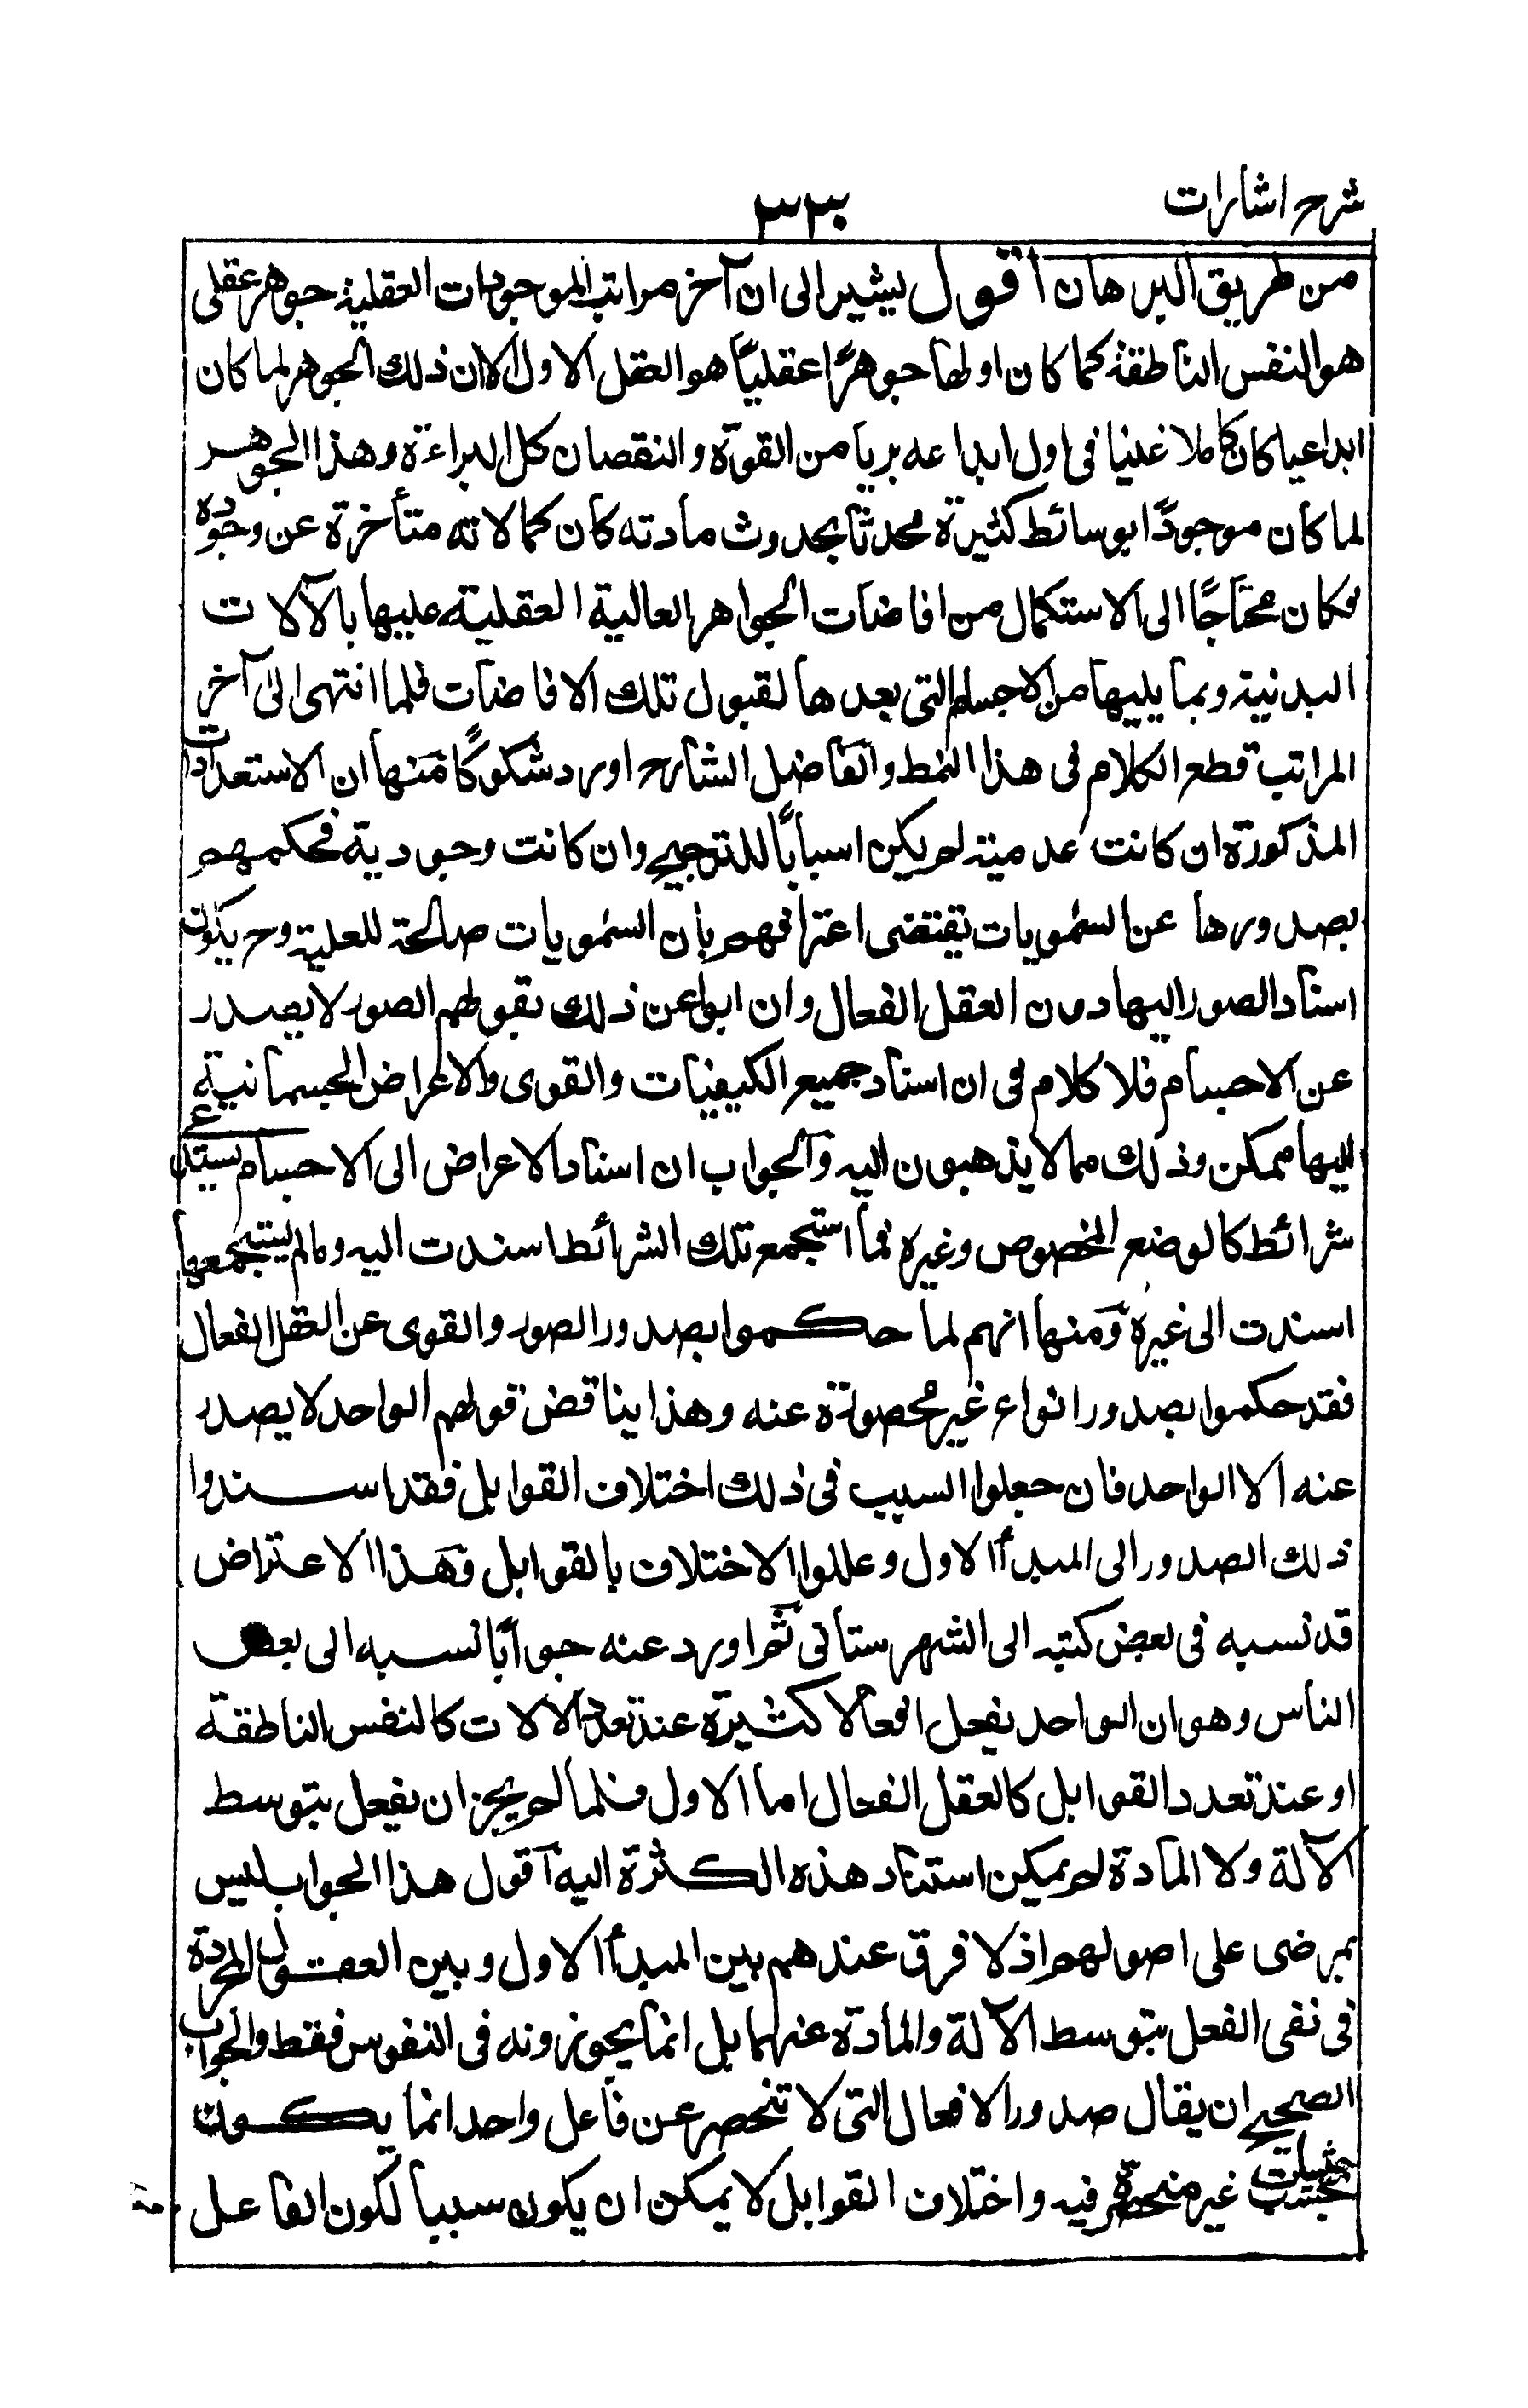 شرح اشارات
٣٣٠
من طريق البرهان اقول يشير الى ان آخر مراتب الموجودات العقلية جوهر عقلى
هو النفس الناطقة كما كان اولها جوهرًا عقليًا هو العقل الاول الا ان ذلك الجوهر لما كان
ابداعيا كان كاملا غنيا فى اول ابداعه بريا من القوة و النقصان كل البراءة و هذا الجوهر
لما كان موجودًا بوسائط كثيرة محدثا بحدوث مادته كان كمالاته متأخرة عن وجوده
فكان محتاجًا الى الاستكمال من افاضات الجواهر العالية العقلية عليها بالآلات
البدنية وبما يليها من الاجسام التى بعدها لقبول تلك الافاضات فلما انتهى الى آخر
المراتب قطع الكلام فى هذا النمط والفاضل الشارح اورد شكوكًا مَنها ان الاستعدادات
المذكورة ان كانت عدمية لم يكن اسبابًا للترجيح وان كانت وجودية فحكمهم
بصدورها عن السمٰويات يقتضى اعترافهم بان السمٰويات صالحة للعلية وح يكون
اسناد الصور اليها دون العقل الفعال وان ابوا عن ذلك بقولهم الصور لا يصدر
عن الاجسام فلا كلام فى ان اسناد جميع الكيفيات والقوى والاعراض الجسمانية
اليها ممكن وذلك مما لا يذهبون اليه وَالجواب ان اسناد الاعراض الى الاجسام يستدعى
شرائط كالوضع المخصوص وغيره فما استجمع تلك الشرائط اسندت اليه وما لم يستجمعها
اسندت الى غيره وَمنها انهم لما حكموا بصدور الصور والقوى عن العقل الفعال
فقد حكموا بصدور انواع غير محصورة عنه وهذا يناقض قولهم الواحد لا يصدر
عنه الا الواحد فان جعلوا السبب فى ذلك اختلاف القوابل فقد اسندوا
ذلك الصدور الى المبدأ الاول وعللوا الاختلاف بالقوابل وَهَذا الاعتراض
قد نسبه فى بعض كتبه الى الشهرستانى ثم اورد عنه جوابًا نسبه الى بعض
الناس وهو ان الواحد يفعل افعالا كثيرة عند تعدد الآلات كالنفس الناطقة
او عند تعدد القوابل كالعقل الفعال اما الاول فلما لم يجز ان يفعل بتوسط
الآلة ولا المادة لم يمكن استناد هذه الكثرة اليه اَقول هذا الجواب ليس
بمرضى على اصولهم اذ لا فرق عندهم بين المبدأ الاول وبين العقول المجردة
فى نفى الفعل بتوسط الآلة والمادة عنهما بل انما يجوزونه فى النفوس فقط والجواب
الصحيح ان يقال صدور الافعال التى لا تنحصر عن فاعل واحد انما يكون
بحسب حيثيات غير منحصرة فيه واختلاف القوابل لا يمكن ان يكون سببا لكون الفاعل